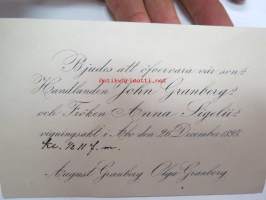 Bjudes att öfvervara vår sons
Handlanden John Granberg's
och Fröken Anna Sigelii
vigningsakt i Åbo den 26 December
Kl. f.m.
August Granberg Olga Granberg